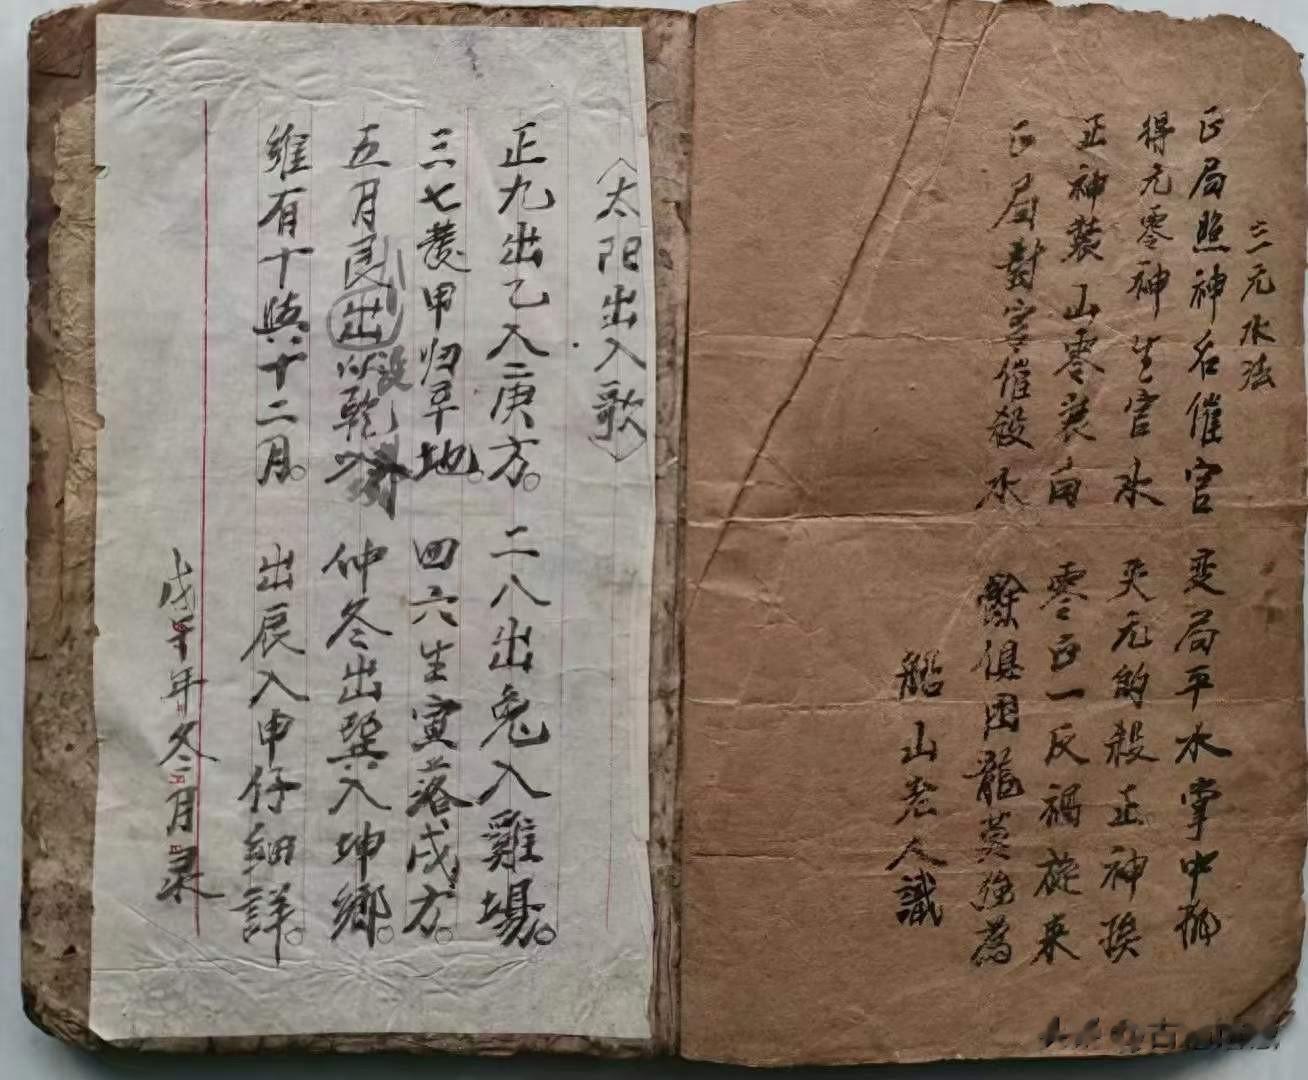 三元水法
正局照神名催官 变局平水掌中撫
得元零神生官水 失元的殺正神挨
正神裝山零裝向 零正一反禍旋来
正局對宮催殺水 餘俱困龍莫強為
船山老人識
〈太阳出入歌〉
正九出乙入庚方。 二八出兔入雞場。
三七發甲归辛地。 四六生寅落戌方。
五月艮出 乾 仲冬出巽入坤鄉。
惟有十與十二月。 出辰入申仔細詳。
戊午年冬月录